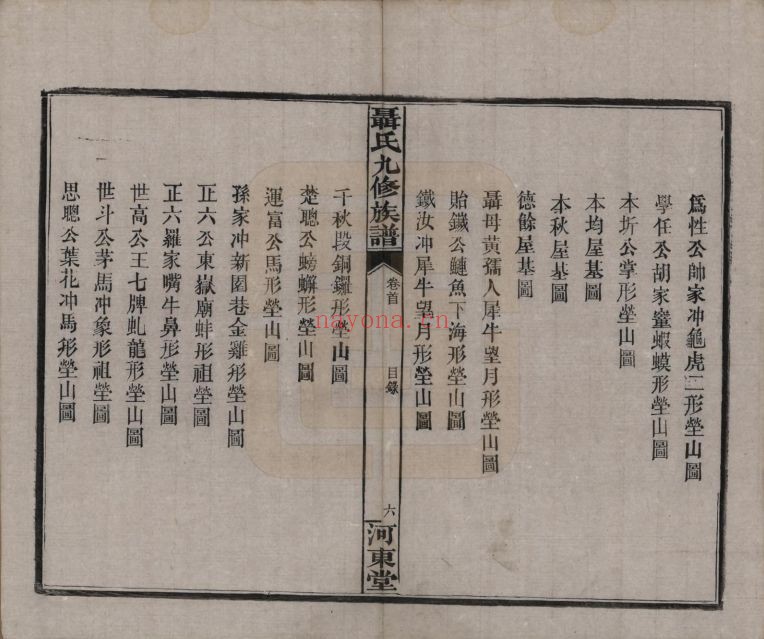 爲性公帥家冲龜虎二形塋山圖
學任公胡家蠻蝦蟆形塋山圖
本圻公掌形塋山圖
本均屋基圖
本秋屋基圖
德餘屋基圖
聶母黄孺人犀牛望月形塋山圖
貽鐵公鰱魚下海形塋山圖
鐵汝冲犀牛望月形塋山圖
聶氏九修族譜
卷首
目錄
六
河東堂
千秋段銅鑼形塋山圖
楚聰公螃蠏形塋山圖
運富公馬形塋山圖
孫家冲新園巷金雞形塋山圖
正六公東嶽廟蚌形祖塋圖
正六羅家嘴牛鼻形塋山圖
世高公王七牌虬龍形塋山圖
世斗公茅馬冲象形祖塋圖
思聰公葉花冲馬形塋山圖
nayona.cn